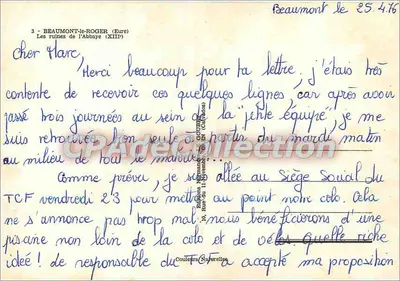 Beaumont le 25.4.76
3 - BEAUMONT-le-ROGER (Eure)
Les ruines de l'Abbaye (XIIIe)
Cher Marc,
Merci beaucoup pour ta lettre, j'étais très
contente de recevoir ces quelques lignes, car après avoir
passé trois journées au sein de la "ptite équipe", je me
suis retrouvée bien seule à partir du mardi matin
au milieu de tout le
CPADeCollection
Comme prévu, je suis allée au Siège Social du
TCF vendredi 23 pour mettre au point notre colo. Cela
ne s'annonce pas trop mal; nous bénéficierons d'une
piscine non loin de la colo et de vélos. quelle riche
idée! Le responsable du TCF a accepté ma proposition
Couleurs Naturelles